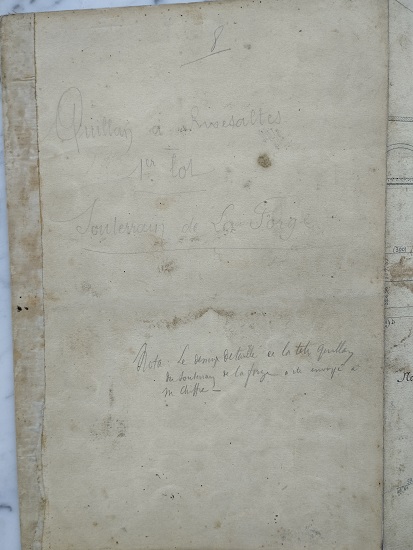 8
Quillan à Rivesaltes
1er lot
Souterrain de La Forge
Nota. Le dessin détaillé de la tête Quillan
du Souterrain de la forge a été envoyé à
M Chiffre